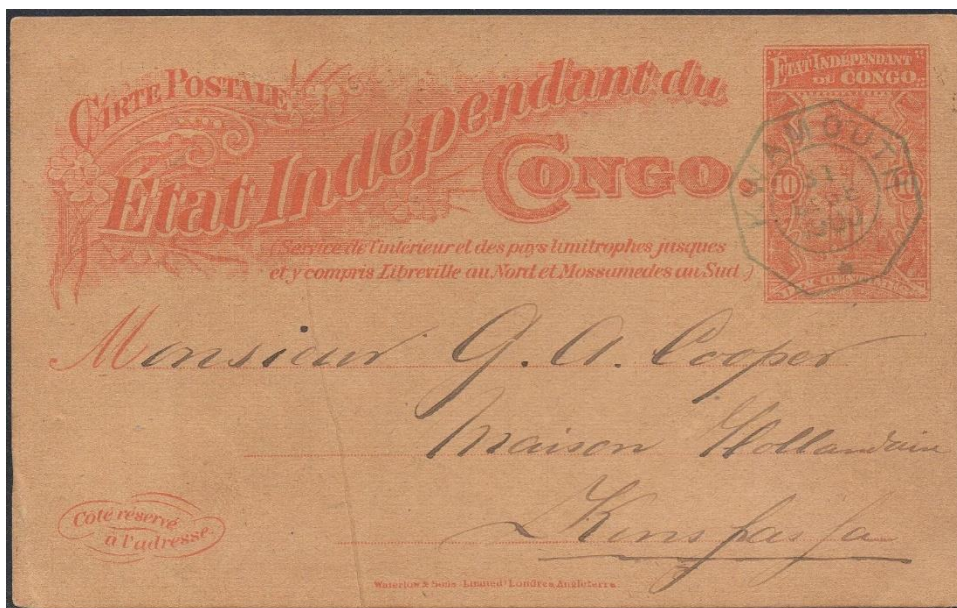 CARTE POSTALE
Etat Indépendant du
CONGO
(Service de l'intérieur et des pays limitrophes jusques
et y compris Libreville au Nord et Mossamedes au Sud.)
ÉTAT INDÉPENDANT
DU CONGO
10
KWAMOUTH
Monsieur G. A. Cooper
Maison Hollandaise
Kinshassa
Côté réservé
à l'adresse.
Waterlow & Sons Limited Londres Angleterre.